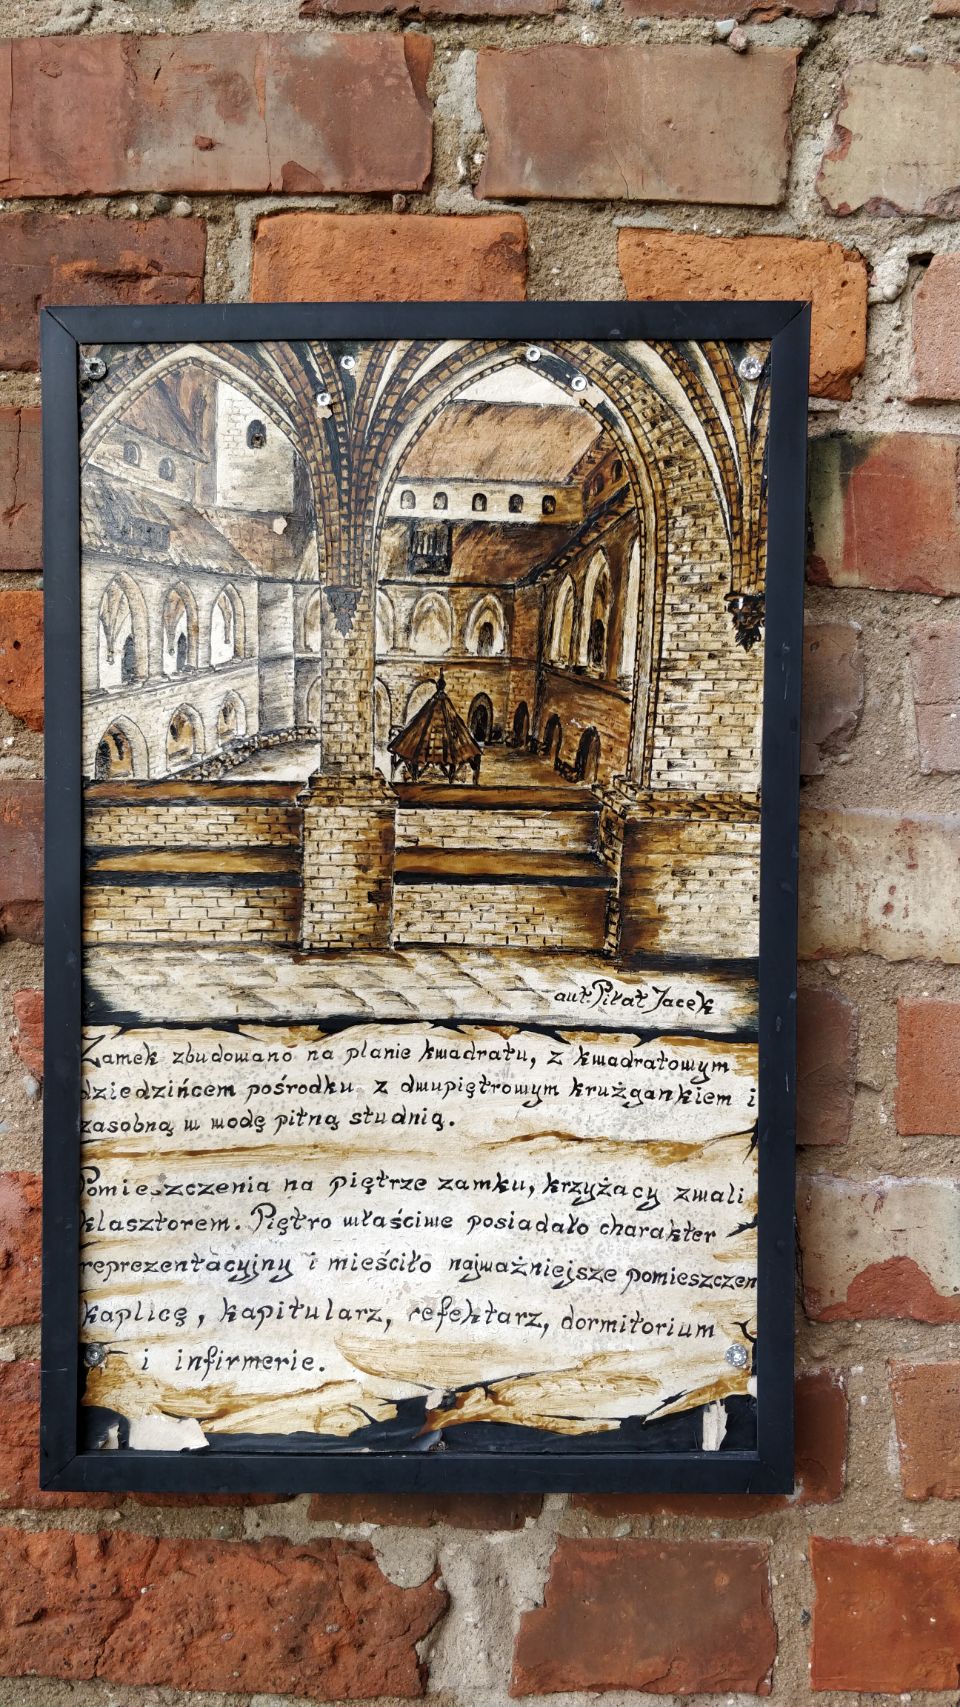 aut. Piłat Jacek
Zamek zbudowano na planie kwadratu, z kwadratowym
dziedzińcem pośrodku z dwupiętrowym krużgankiem i
zasobną w wodę pitną studnią.
Pomieszczenia na piętrze zamku, krzyżacy zwali
klasztorem. Piętro właściwe posiadało charakter
reprezentacyjny i mieściło najważniejsze pomieszczen
kaplicę, kapitularz, refektarz, dormitorium
i infirmerie.